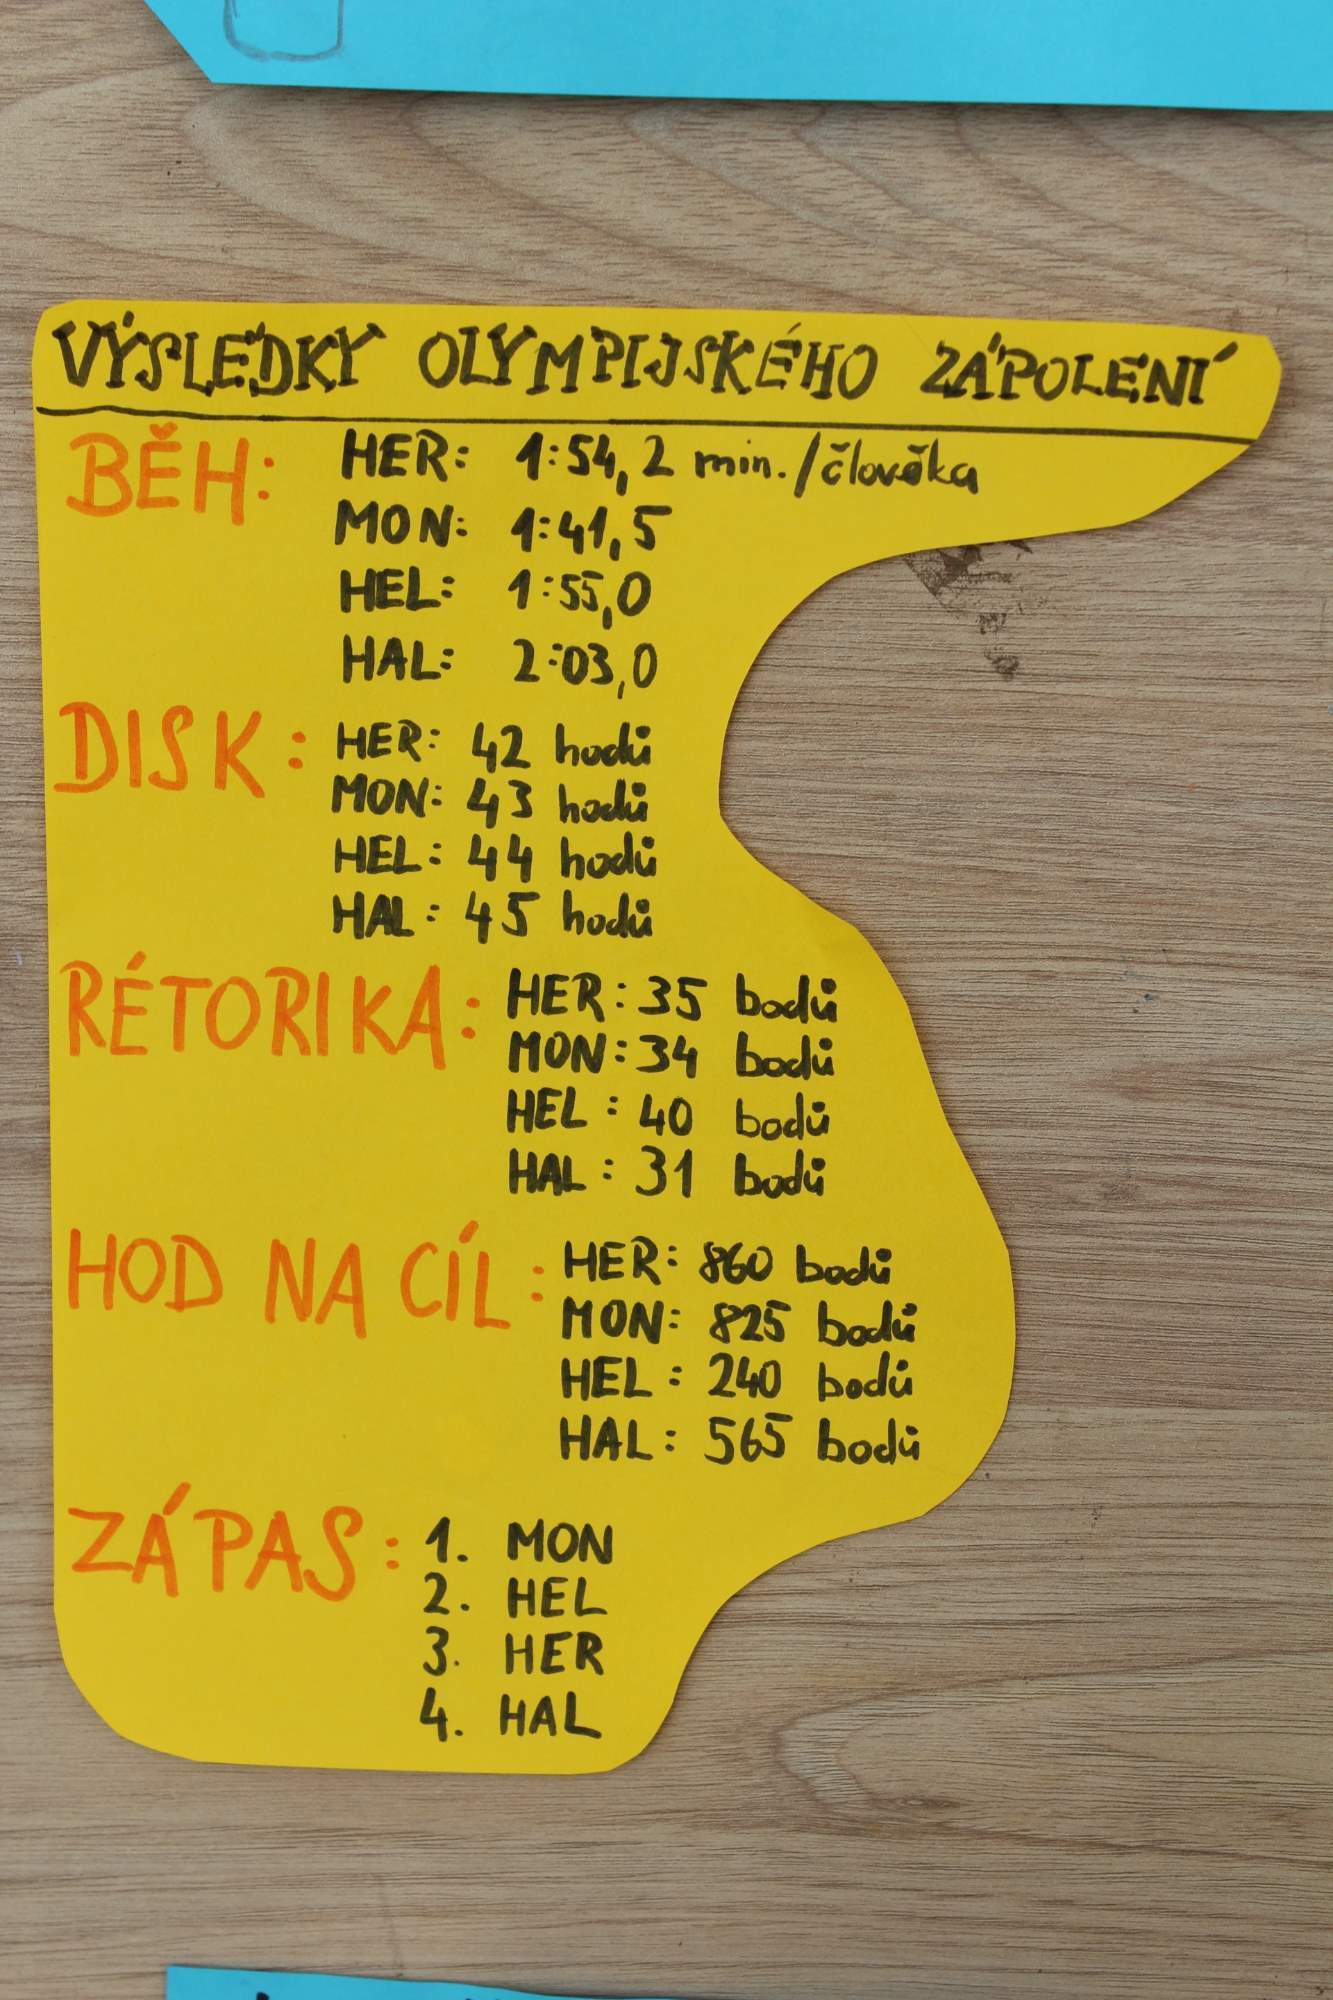 VÝSLEDKY OLYMPIJSKÉHO ZÁPOLENÍ
BĚH: HER: 1:54,2 min./člověka
MON: 1:41,5
HEL: 1:55,0
HAL: 2:03,0
DISK: HER: 42 hodů
MON: 43 hodů
HEL: 44 hodů
HAL: 45 hodů
RÉTORIKA: HER: 35 bodů
MON: 34 bodů
HEL: 40 bodů
HAL: 31 bodů
HOD NA CÍL: HER: 860 bodů
MON: 825 bodů
HEL: 240 bodů
HAL: 565 bodů
ZÁPAS: 1. MON
2. HEL
3. HER
4. HAL